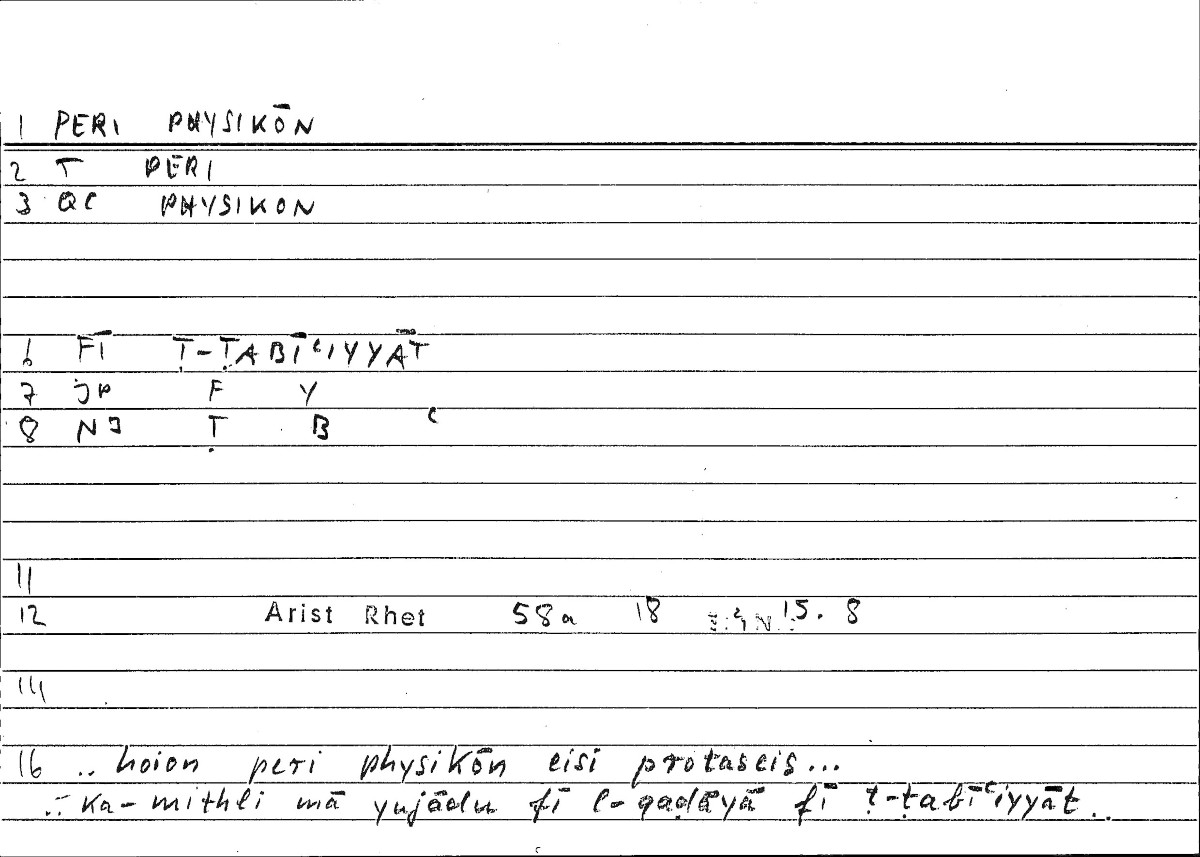 1 PERI PHYSIKŌN
2 T PERI
3 QC PHYSIKON
6 FĪ Ṭ-ṬABĪʿIYYĀT
7 JP F Y
8 NJ Ṭ B ʿ
11
12 Arist Rhet 58a 18 15. 8
14
16 .. hoion peri physikōn eisi protaseis...
ka-mithli mā yujādu fī l-qaḍāyā fī ṭ-ṭabīʿiyyāt..